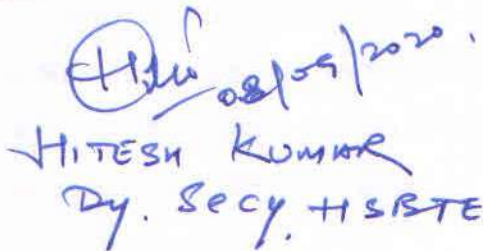 08/09/2020.
HITESH KUMAR
Dy. Secy. HSBTE